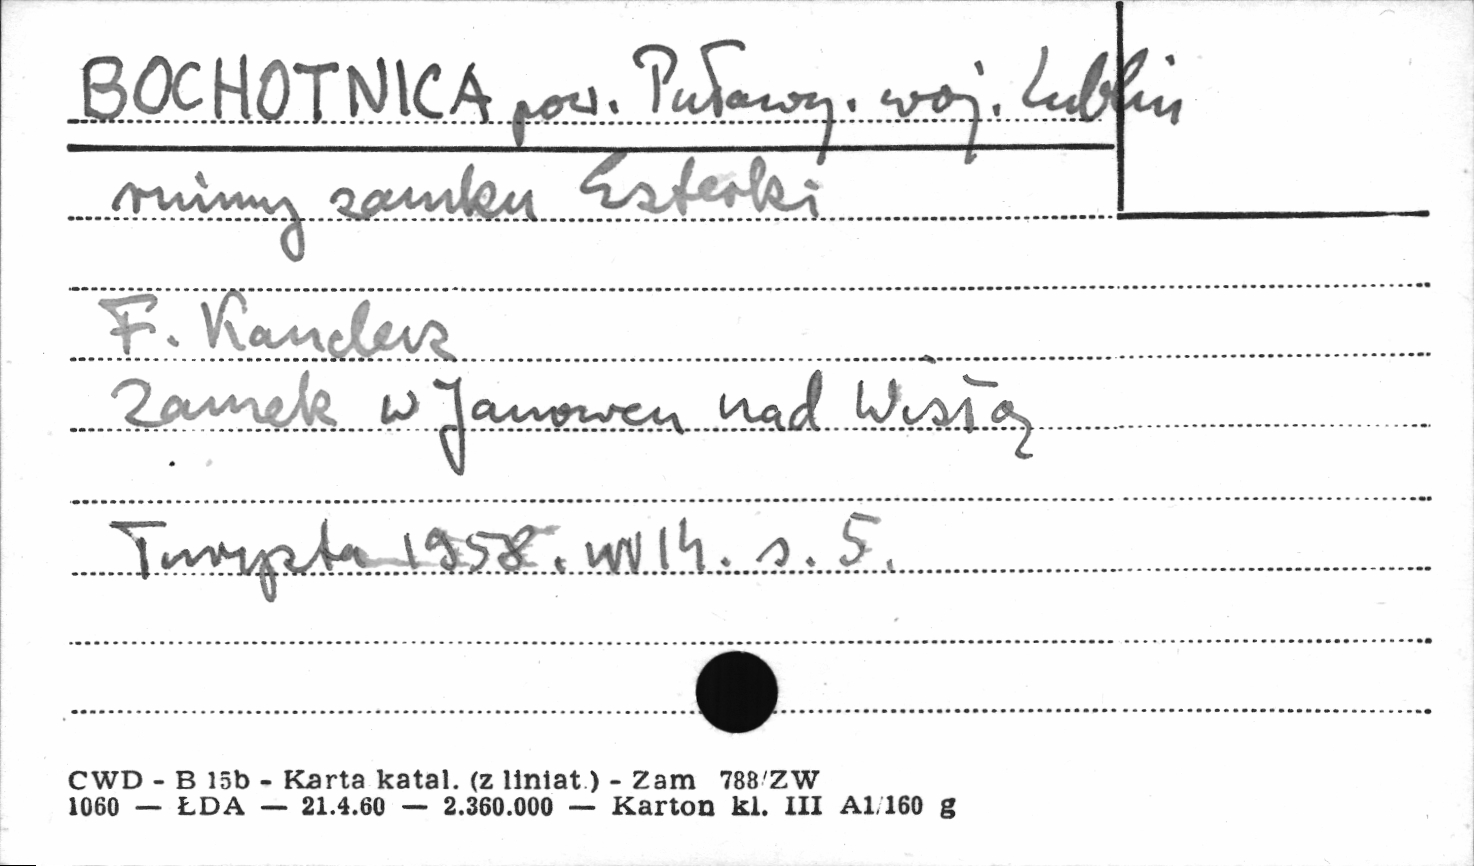 BOCHOTNICA pow. Puławy. woj. Lublin
ruiny zamku Esterki
F. Kanderz
Zamek w Janowcu nad Wisłą
Turysta 1958. nr 14. s. 5.
CWD - B 15b - Karta katal. (z liniat.) - Zam 788/ZW
1060 — ŁDA — 21.4.60 — 2.360.000 — Karton kl. III A1/160 g